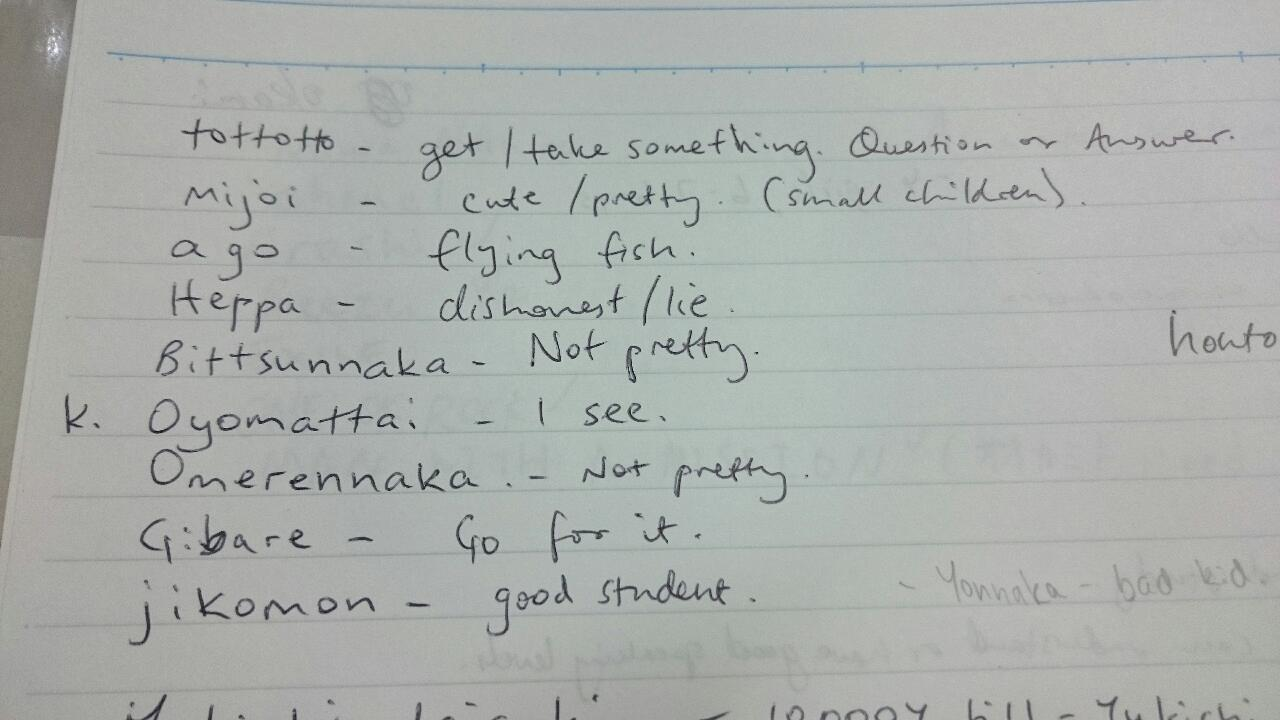 tottotto - get / take something. Question or Answer.
Mijoi - cute / pretty. (small children).
ago - flying fish.
Heppa - dishonest / lie.
Bittsunnaka - Not pretty.
honto
k. Oyomattai - I see.
Omerennaka. - Not pretty.
Gibare - Go for it.
jikomon - good student.
- Yonnaka - bad kid.